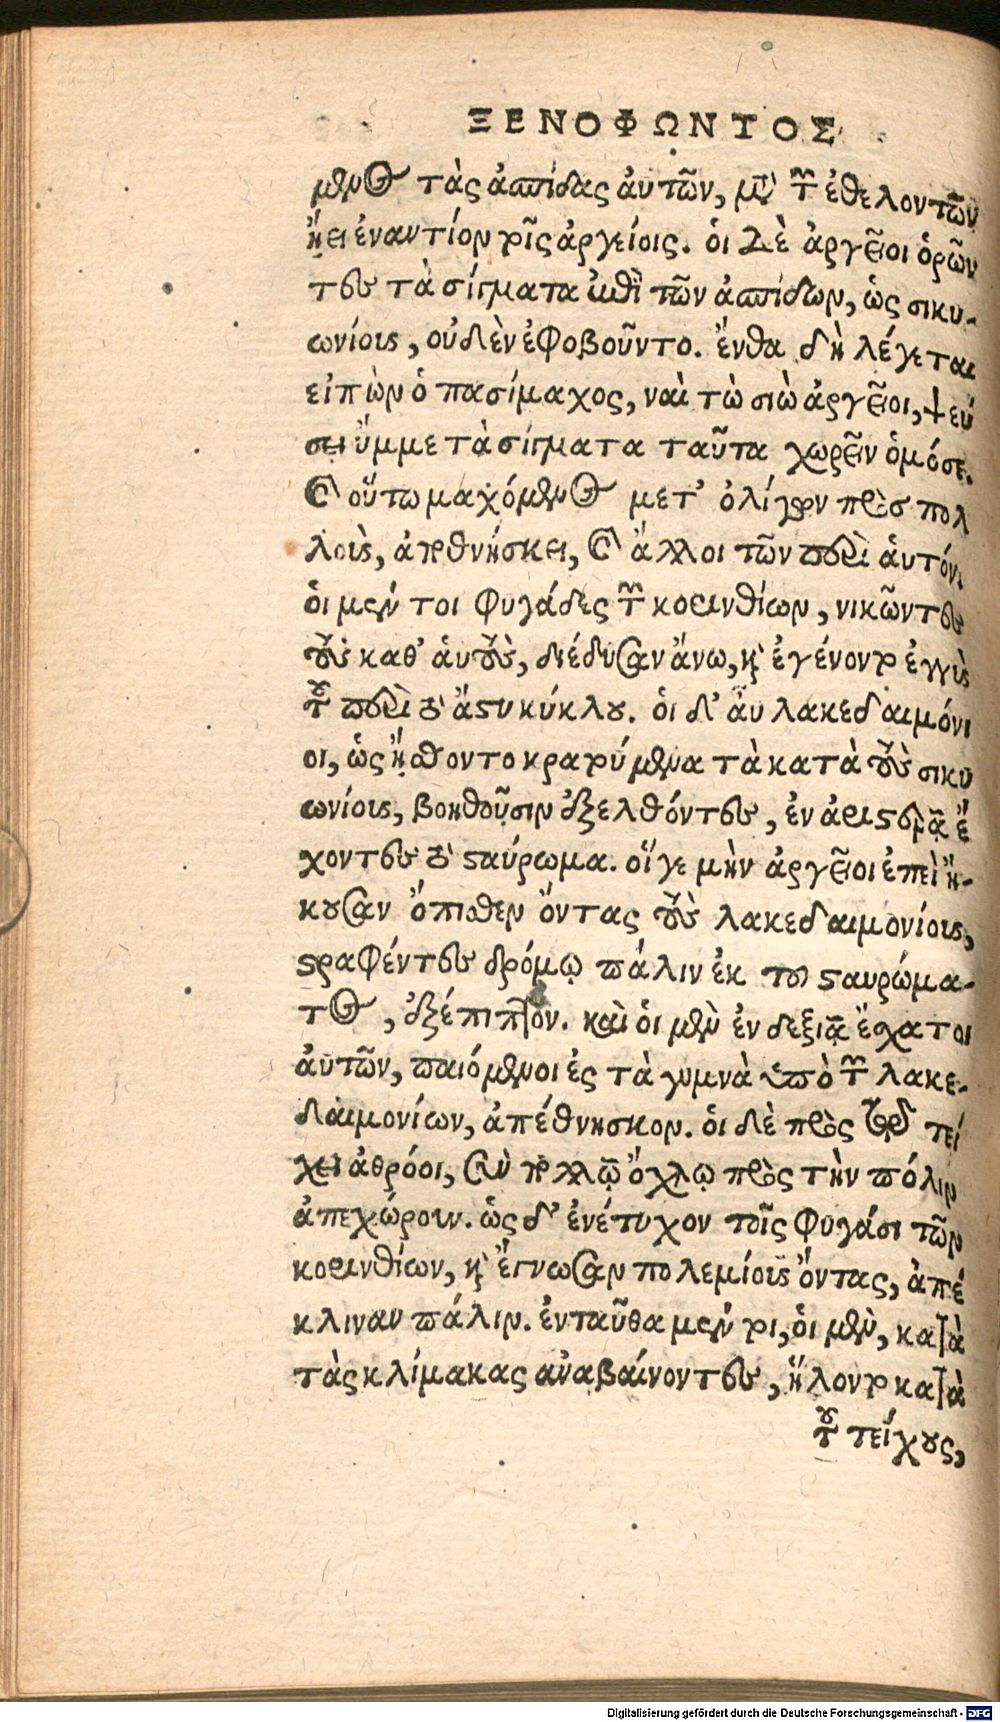 ΞΕΝΟΦΩΝΤΟΣ
μενος τὰς ἀσπίδας ἀυτῶν, μετὰ τῶν ἐθελοντῶν
ᾔει ἐναντίον τοῖς ἀργείοις. ὁι δὲ ἀργεῖοι ὁρῶν
τες τὰ σίγματα ἐπὶ τῶν ἀσπίδων, ὡς σικυ-
ωνίους, οὐδὲν ἐφοβοῦντο. ἔνθα δὴ λέγεται
εἰπὼν ὁ πασίμαχος, ναὶ τὼ σιὼ ἀργεῖοι, ψεύ
σει ὔμμε τὰ σίγματα ταῦτα χωρεῖν ὁμόσε.
καὶ οὕτω μαχόμενος μετ’ ὀλίγων πρὸς πολ
λοὺς, ἀποθνήσκει, καὶ ἄλλοι τῶν περὶ ἁυτόν.
ὁι μέν τοι φυγάδες τῶν κορινθίων, νικῶντες
τοὺς καθ’ ἁυτοὺς, διέδυσαν ἄνω, καὶ ἐγένοντο ἐγγὺς
τοῦ περὶ τὸ ἄστυ κύκλου. ὁι δ’ ἆυ λακεδαιμόνι
οι, ὡς ᾔσθοντο κρατούμενα τὰ κατὰ τοὺς σικυ
ωνίους, βοηθοῦσιν ἐξελθόντες, ἐν ἀριστερᾷ ἔ
χοντες τὸ σταύρωμα. οἵ γε μὴν ἀργεῖοι ἐπεὶ ἤ-
κουσαν ὄπισθεν ὄντας τοὺς λακεδαιμονίους,
στραφέντες δρόμῳ πάλιν ἐκ τοῦ σταυρώμα-
τος, ἐξέπιπτον. καὶ ὁι μὲν ἐν δεξιᾷ ἔσχατοι
ἀυτῶν, παιόμενοι ἐς τὰ γυμνὰ ὑπὸ τῶν λακε-
δαιμονίων, ἀπέθνησκον. ὁι δὲ πρὸς τῷ τεί
χει ἀθρόοι, σὺν πολλῷ ὄχλῳ πρὸς τὴν πόλιν
ἀπεχώρουν. ὡς δ’ ἐνέτυχον τοῖς φυγάσι τῶν
κορινθίων, καὶ ἔγνωσαν πολεμίους ὄντας, ἀπέ
κλιναν πάλιν. ἐνταῦθα μέν τοι, ὁι μὲν, κατὰ
τὰς κλίμακας ἀναβαίνοντες, ἥλοντο κατὰ
τοῦ τείχους,
Digitalisierung gefördert durch die Deutsche Forschungsgemeinschaft - DFG